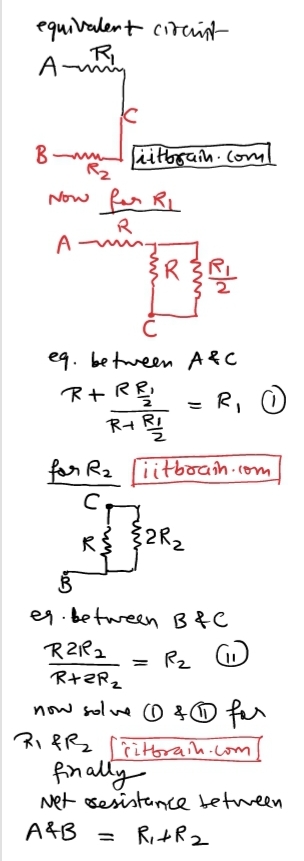 equivalent circuit
A R₁
C
B R₂ iitbrain.com
Now for R₁
R
A R R₁/2
C
eq. between A & C
R + (R R₁/2)/(R + R₁/2) = R₁ ①
for R₂ iitbrain.com
C
R 2R₂
B
eq. between B & C
R2R₂/(R+2R₂) = R₂ ⑪
now solve ① & ⑪ for
R₁ & R₂ iitbrain.com
finally
Net resistance between
A&B = R₁+R₂